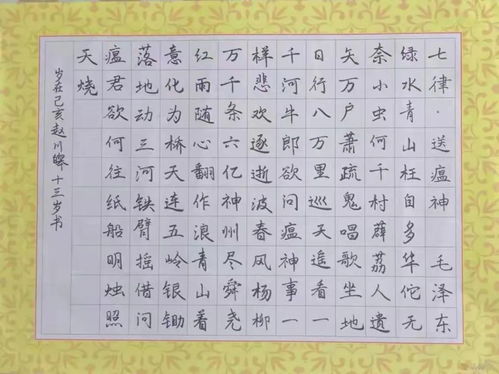 七律·送瘟神 毛泽东
绿水青山枉自多华佗无
奈小虫何千村薜荔人遗
矢万户萧疏鬼唱歌坐地
日行八万里巡天遥看一
千河牛郎欲问瘟神事一
样悲欢逐逝波春风杨柳
万千条六亿神州尽舜尧
红雨随心翻作浪青山着
意化为桥天连五岭银锄
落地动三河铁臂摇借问
瘟君欲何往纸船明烛照
天烧
岁在己亥赵川十三岁书